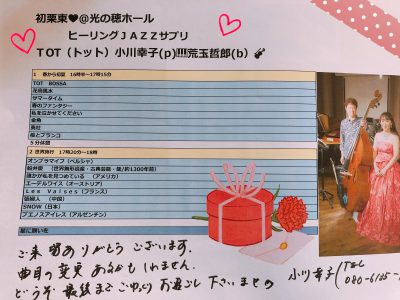 初栗東♥@光の穂ホール
ヒーリングJAZZサプリ
TOT（トット）小川幸子(p)!!!!荒玉哲郎(b)🎻
1 春から初夏 16時半〜17時15分
TOT BOSSA
花鳥風水
サマータイム
春のファンタジー
私を泣かせてください
金魚
貴社
桜とブランコ
5分休憩
2 世界旅行 17時20分〜18時
オンブラマイフ（ペルシャ）
誰かが私を見つめている （アメリカ）
エーデルワイス（オーストリア）
Les Valses（フランス）
（中国）
SNOW（日本）
ブエノスアイレス（アルゼンチン）
星に願いを
ご来場ありがとうございます。
曲目の変更あるかもしれません。
どうぞ最後までごゆっくりお過ごし下さいませ
小川幸子
TEL